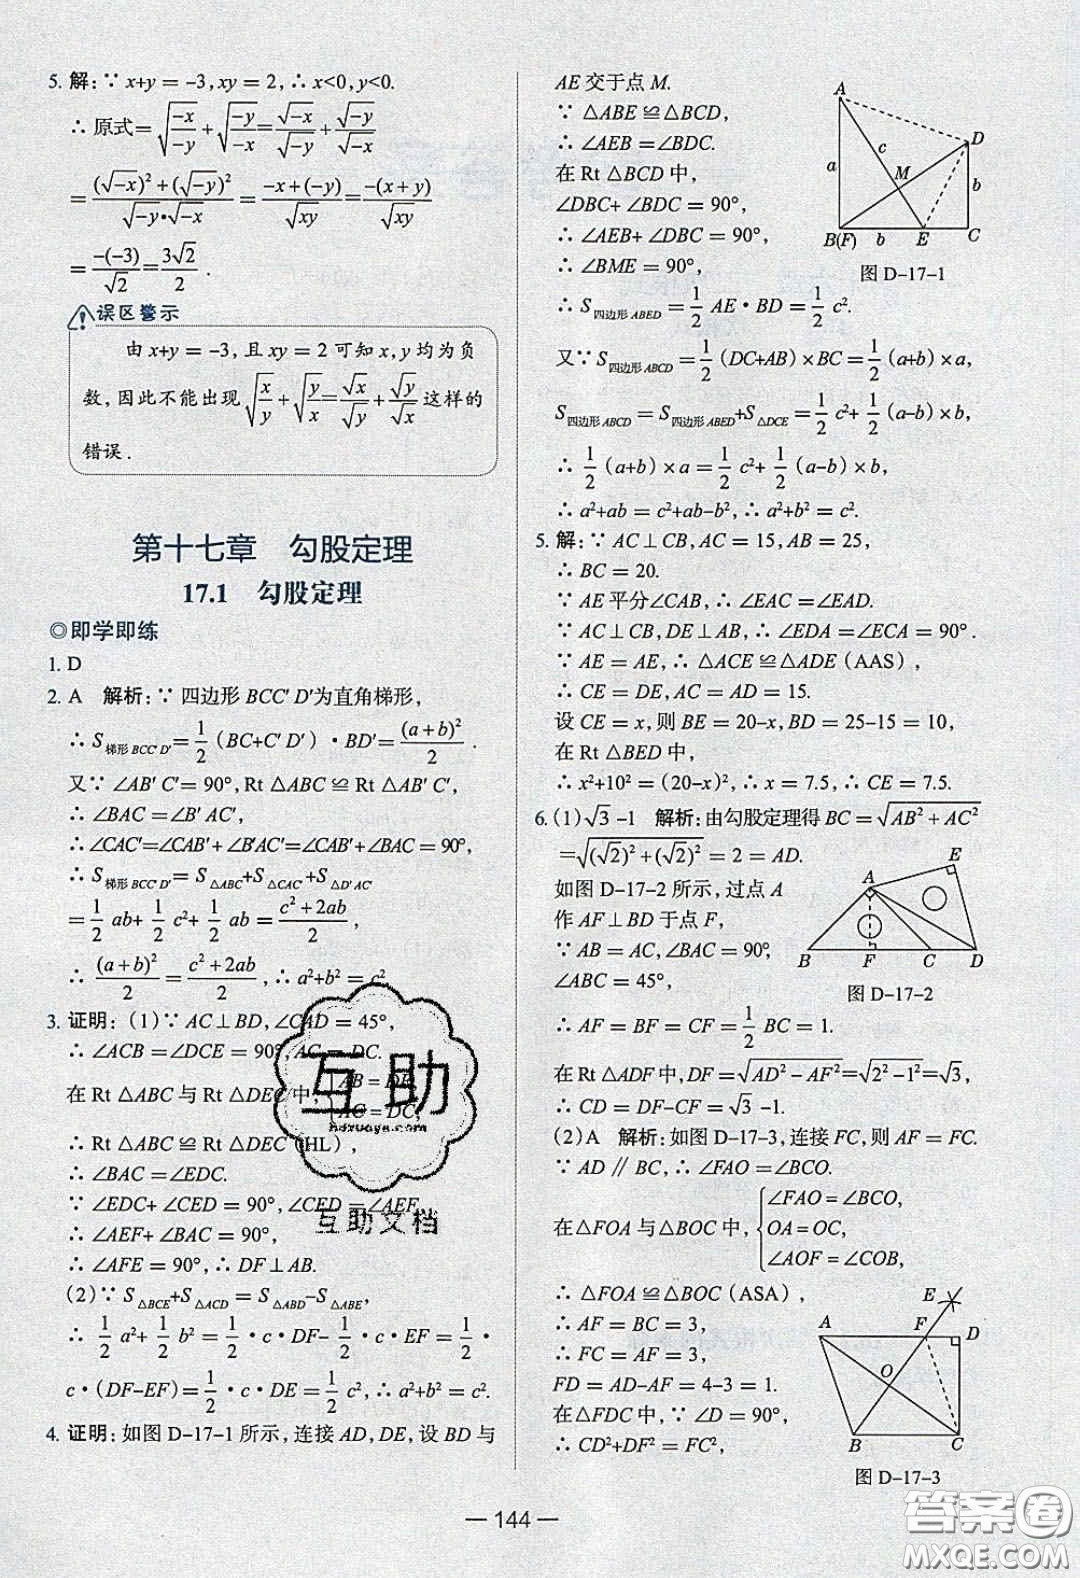 5. 解:∵ x+y = -3,xy = 2,∴ x<0,y<0.
∴ 原式=√(-x/-y)+√(-y/-x)=√-x/√-y+√-y/√-x
=((√-x)²+(√-y)²)/(√-y·√-x)=(-x+(-y))/√xy=-(x+y)/√xy
=-(-3)/√2=3√2/2 .
误区警示
由 x+y = -3,且 xy = 2 可知 x,y 均为负
数,因此不能出现√(x/y)+√(y/x)=√x/√y+√y/√x这样的
错误.
第十七章 勾股定理
17.1 勾股定理
◎即学即练
1. D
2. A 解析:∵ 四边形 BCC′ D′为直角梯形,
∴ S梯形 BCC′ D′=1/2 (BC+C′ D′)·BD′=(a+b)²/2 .
又∵ ∠AB′ C′= 90°,Rt △ABC ≌ Rt △AB′ C′,
∴ ∠BAC = ∠B′ AC′,
∴ ∠CAC′=∠CAB′+∠B′AC′=∠CAB′+∠BAC=90°,
∴ S梯形 BCC′ D′= S△ABC+S△CAC′+S△D′ AC′
= 1/2 ab+ 1/2 c²+ 1/2 ab = (c²+2ab)/2,
∴ (a+b)²/2 = (c²+2ab)/2,∴ a²+b² = c².
3. 证明:(1)∵ AC⊥BD,∠CAD = 45°,
∴ ∠ACB = ∠DCE = 90°,AC = DC.
在 Rt △ABC 与 Rt △DEC 中,{AB = DE, AC = DC,
∴ Rt △ABC ≌ Rt △DEC (HL),
∴ ∠BAC = ∠EDC.
∵ ∠EDC+ ∠CED = 90°,∠CED = ∠AEF,
∴ ∠AEF+ ∠BAC = 90°,
∴ ∠AFE = 90°,∴ DF⊥AB.
(2)∵ S△BCE+S△ACD = S△ABD-S△ABE,
∴ 1/2 a²+ 1/2 b² = 1/2·c·DF- 1/2·c·EF = 1/2·
c·(DF-EF)=1/2·c·DE = 1/2 c²,∴ a²+b² = c².
4. 证明:如图 D-17-1 所示,连接 AD,DE,设 BD 与
AE 交于点 M.
∵ △ABE ≌ △BCD,
∴ ∠AEB = ∠BDC.
在 Rt △BCD 中,
∠DBC+ ∠BDC = 90°,
∴ ∠AEB+ ∠DBC = 90°,
∴ ∠BME = 90°,
A
D
a
c
M
b
B(F) b E C
图 D-17-1
∴ S四边形 ABED = 1/2 AE·BD = 1/2 c².
又∵ S四边形 ABCD = 1/2 (DC+AB)×BC = 1/2 (a+b)×a,
S四边形 ABCD = S四边形 ABED+S△DCE = 1/2 c²+ 1/2 (a-b)×b,
∴ 1/2 (a+b)×a = 1/2 c²+ 1/2 (a-b)×b,
∴ a²+ab = c²+ab-b²,∴ a²+b² = c².
5. 解:∵ AC⊥CB,AC = 15,AB = 25,
∴ BC = 20.
∵ AE 平分∠CAB,∴ ∠EAC = ∠EAD.
∵ AC⊥CB,DE⊥AB,∴ ∠EDA = ∠ECA = 90°.
∵ AE = AE,∴ △ACE ≌ △ADE (AAS),
∴ CE = DE,AC = AD = 15.
设 CE = x,则 BE = 20-x,BD = 25-15 = 10,
在 Rt △BED 中,
∴ x²+10² = (20-x)²,∴ x = 7.5,∴ CE = 7.5.
6. (1)√3 -1 解析:由勾股定理得 BC = √(AB²+AC²)
=√((√2)²+(√2)²) = 2 = AD.
如图 D-17-2 所示,过点 A
作 AF⊥BD 于点 F,
∵ AB = AC,∠BAC = 90°,
∠ABC = 45°,
E
A
B F C D
图 D-17-2
∴ AF = BF = CF = 1/2 BC = 1.
在 Rt △ADF 中,DF = √(AD²-AF²)=√(2²-1²)=√3,
∴ CD = DF-CF = √3 -1.
(2)A 解析:如图 D-17-3,连接 FC,则 AF = FC.
∵ AD∥BC,∴ ∠FAO = ∠BCO.
在△FOA 与△BOC 中,{∠FAO = ∠BCO, OA = OC, ∠AOF = ∠COB,
∴ △FOA ≌ △BOC (ASA),
∴ AF = BC = 3,
∴ FC = AF = 3,
FD = AD-AF = 4-3 = 1.
在△FDC 中,∵ ∠D = 90°,
∴ CD²+DF² = FC²,
E
A F D
O
B C
图 D-17-3
— 144 —
互助
hdzuoye.com
互助文档
答案圈
MXQE.COM